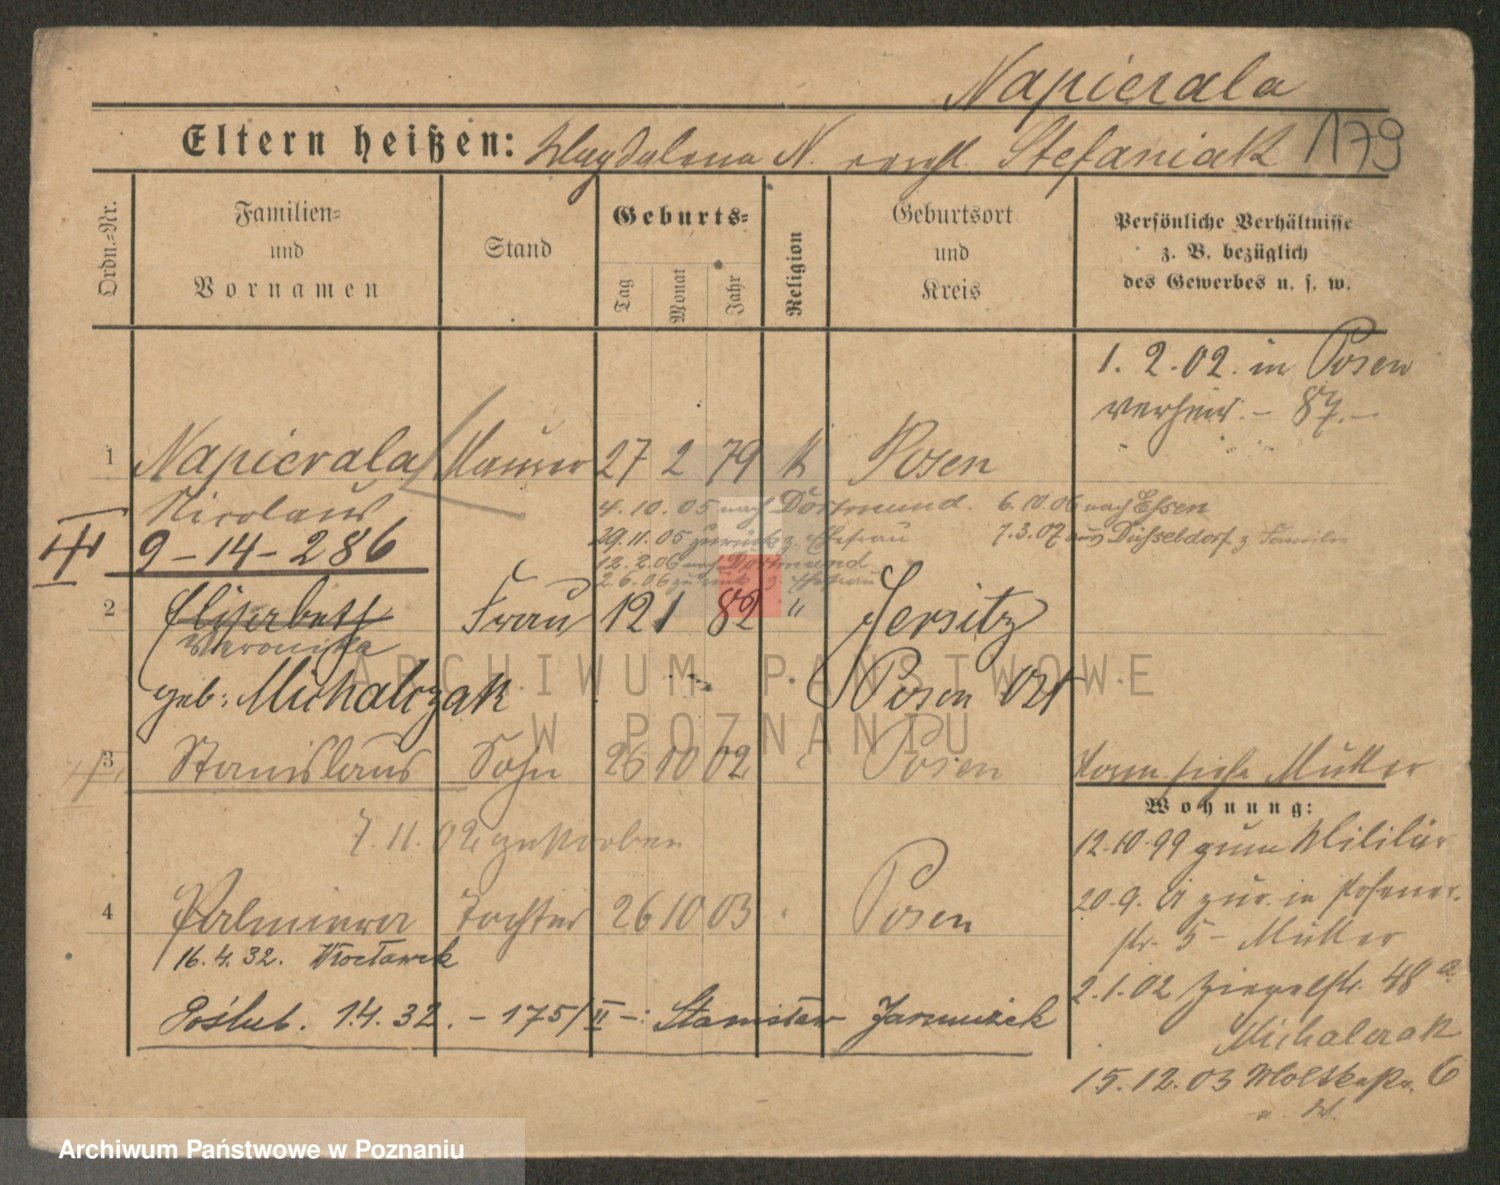 Napierala
Eltern heißen: Magdalena N. Stefaniak 179
Ordn.-Nr.
Familien-
und
Vornamen
Stand
Geburts-
Tag
Monat
Jahr
Religion
Geburtsort
und
Kreis
Persönliche Verhältnisse
z. B. bezüglich
des Gewerbes u. s. w.
1. 2. 02. in Posen
verheir. - 87.-
1 Napierala Maurer 27 2 79 K Posen
Nicolaus
4. 10. 05 nach Dortmund. 6. 10. 06 nach Essen
29. 11. 05 zurück z. Ehefrau 7. 3. 07 aus Düsseldorf z Familie
III 9-14-286
12. 2. 06 nach Dortmund
2. 6. 06 zurück z. Ehefrau
2 Elisabeth Frau 12 1 82 " Jersitz
Veronika
geb: Michalczak Posen Ost
3 Stanislaus Sohn 26 10 02 Posen
siehe Mutter
Wohnung:
7. 11. 02 gestorben
12. 10. 99 zum Militär
20. 9. 01 zur. in Posener-
str. 5 - Mutter
4 Palmira Tochter 26 10 03 Posen
16. 4. 32. Włocławek
2. 1. 02 Ziegelstr. 48 a
Michalczak
Poślub. 1.4. 32. - 175/II -: Stanisław Jarmużek
15. 12. 03 6
ARCHIWUM PAŃSTWOWE
W POZNANIU
Archiwum Państwowe w Poznaniu